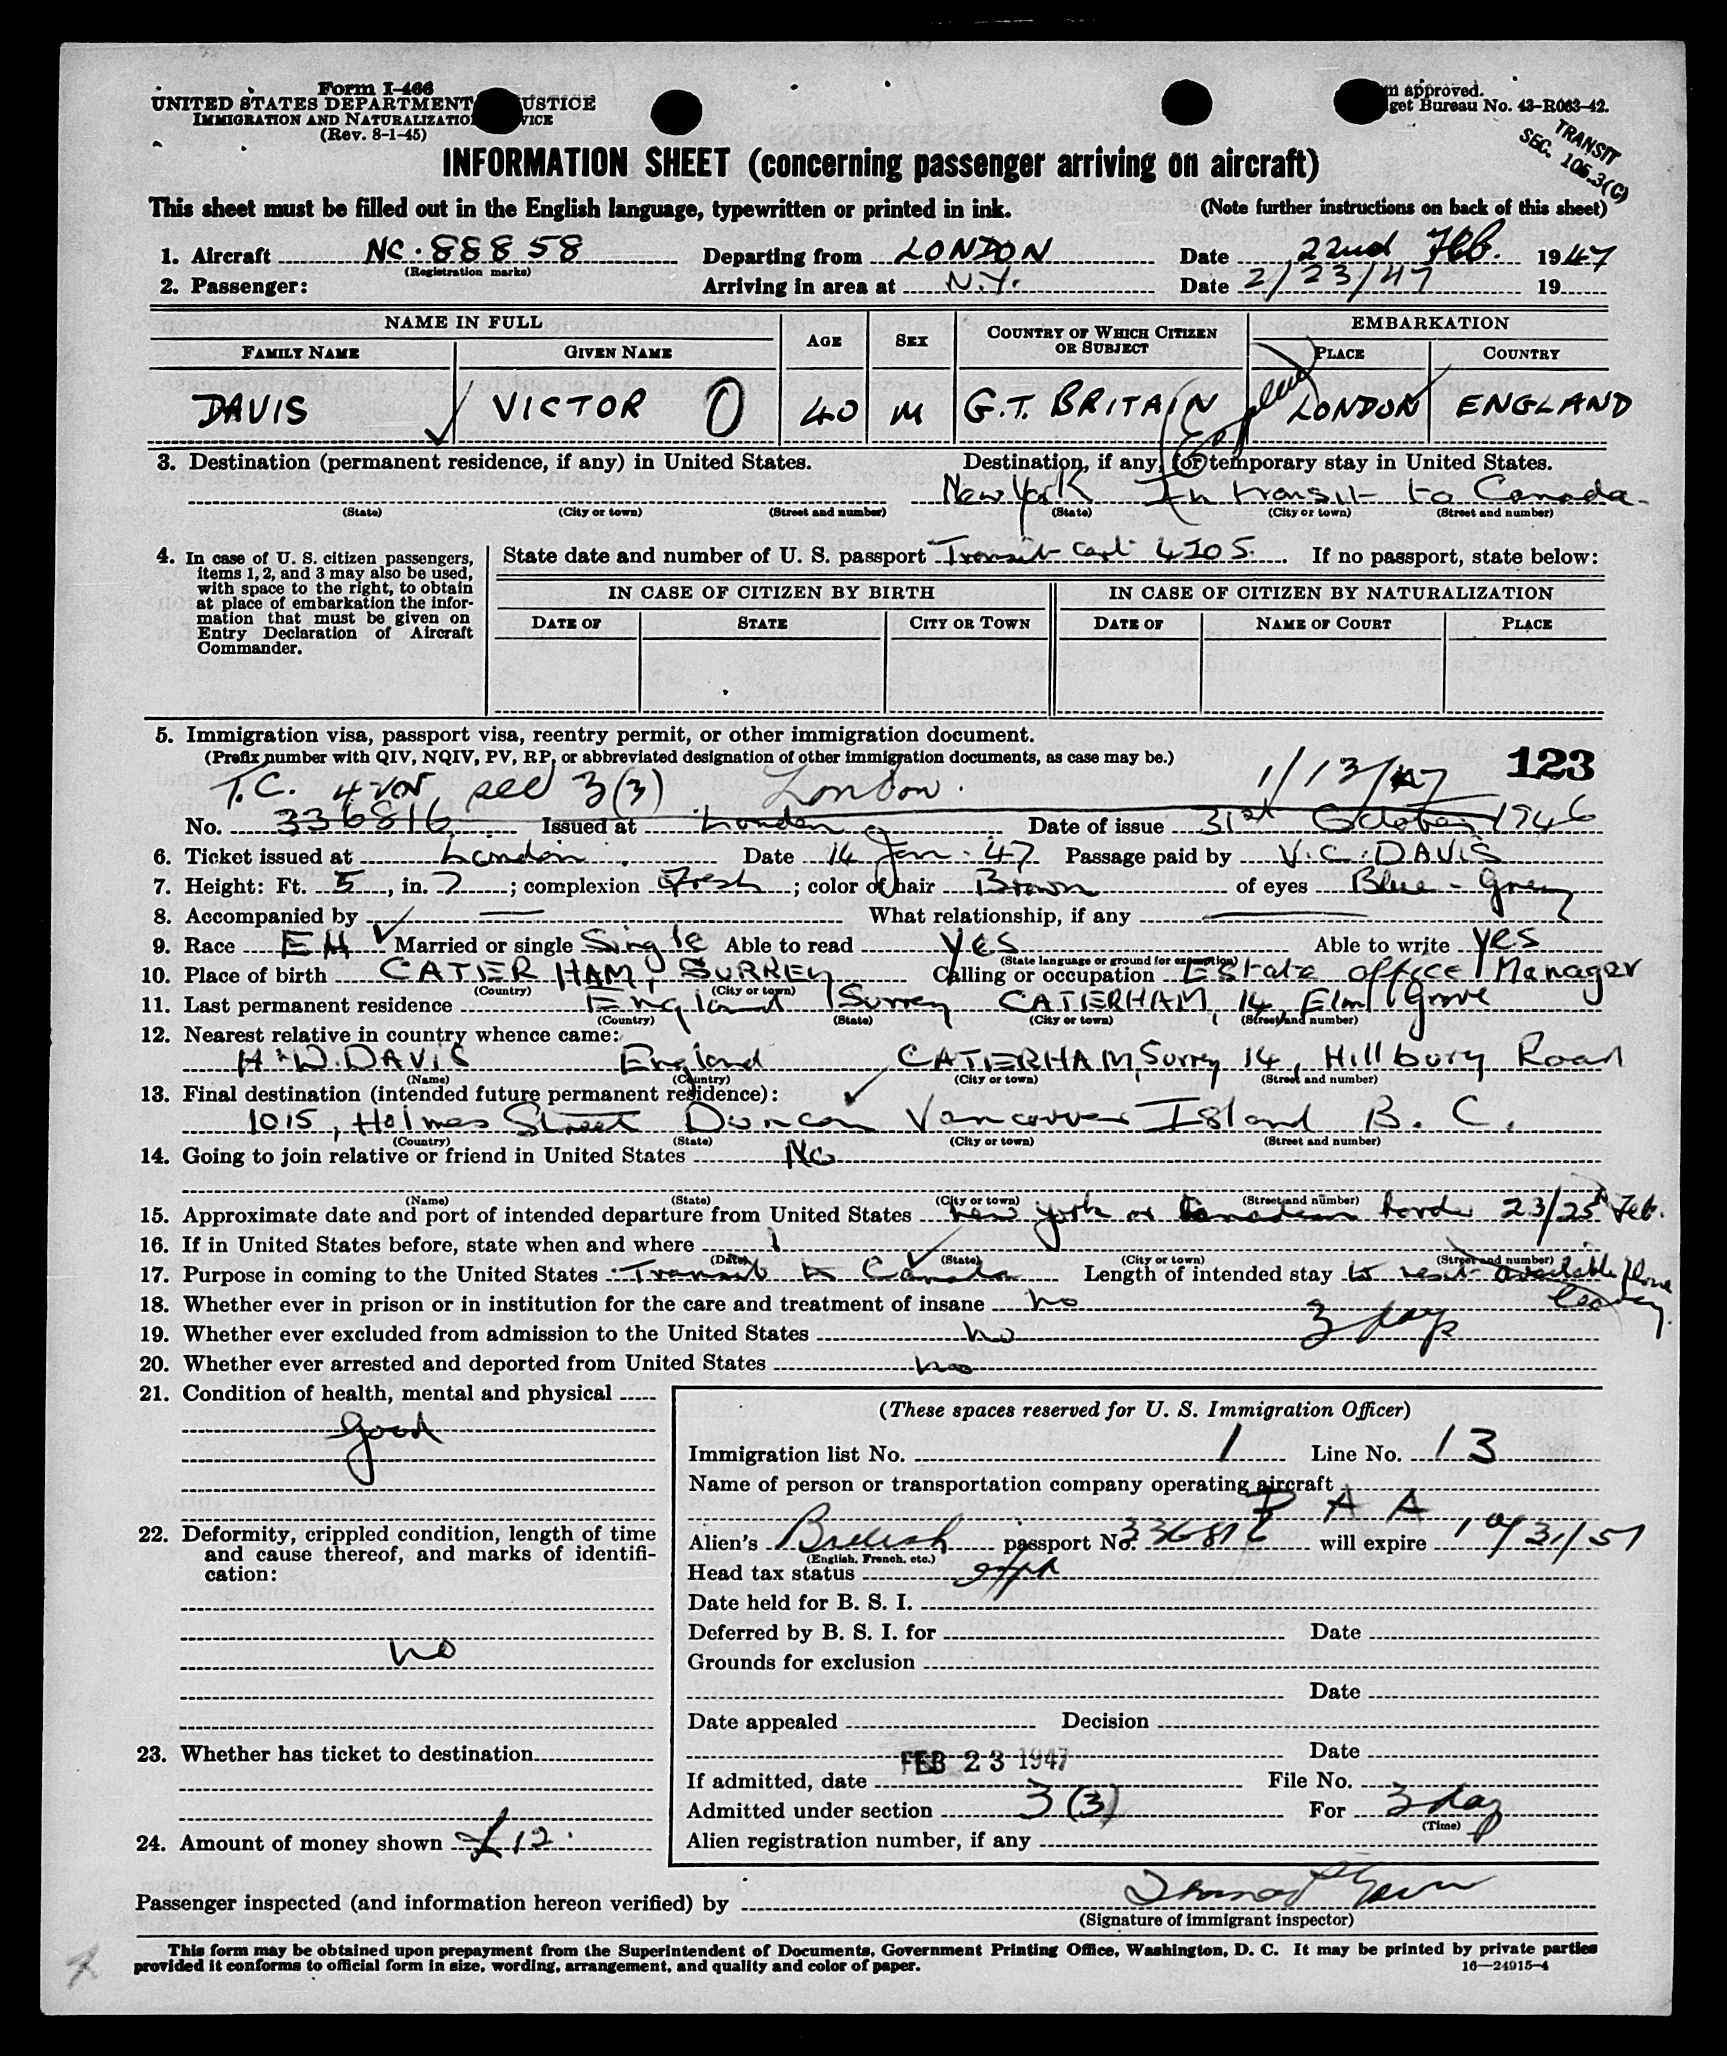 Form I-466
UNITED STATES DEPARTMENT USTICE
IMMIGRATION AND NATURALIZATIO VICE
(Rev. 8-1-45)
m approved.
get Bureau No. 43-R063-42.
TRANSIT
SEC. 105.3(C)
INFORMATION SHEET (concerning passenger arriving on aircraft)
This sheet must be filled out in the English language, typewritten or printed in ink. (Note further instructions on back of this sheet)
1. Aircraft NC. 88858 Departing from LONDON Date 22nd Feb. 1947
(Registration marks)
2. Passenger: Arriving in area at N.Y. Date 2/23/47 19
NAME IN FULL AGE SEX COUNTRY OF WHICH CITIZEN OR SUBJECT EMBARKATION
FAMILY NAME GIVEN NAME PLACE COUNTRY
DAVIS VICTOR O 40 M G.T. BRITAIN LONDON ENGLAND
3. Destination (permanent residence, if any) in United States. Destination, if any, for temporary stay in United States.
New York In transit to Canada
(State) (City or town) (Street and number) (State) (City or town) (Street and number)
4. In case of U. S. citizen passengers, items 1, 2, and 3 may also be used, with space to the right, to obtain at place of embarkation the information that must be given on Entry Declaration of Aircraft Commander.
State date and number of U. S. passport Transit Card 4205. If no passport, state below:
IN CASE OF CITIZEN BY BIRTH IN CASE OF CITIZEN BY NATURALIZATION
DATE OF STATE CITY OR TOWN DATE OF NAME OF COURT PLACE
5. Immigration visa, passport visa, reentry permit, or other immigration document.
(Prefix number with QIV, NQIV, PV, RP, or abbreviated designation of other immigration documents, as case may be.)
123
T.C. 4205 sec 3(3) London. 1/13/47
No. 336816 Issued at London Date of issue 31st October 1946
6. Ticket issued at London Date 14 Jan. 47 Passage paid by V.C. DAVIS
7. Height: Ft. 5, in. 7; complexion Fresh; color of hair Brown of eyes Blue-Grey
8. Accompanied by — What relationship, if any —
9. Race EH Married or single Single Able to read Yes Able to write Yes
(State language or ground for exemption)
10. Place of birth CATERHAM, SURREY Calling or occupation Estate office Manager
(Country) (City or town)
11. Last permanent residence England Surrey CATERHAM, 14, Elm Grove
(Country) (State) (City or town) (Street and number)
12. Nearest relative in country whence came:
H. W. DAVIS England CATERHAM, Surrey 14, Hillbury Road
(Name) (Country) (City or town) (Street and number)
13. Final destination (intended future permanent residence):
1015, Holmes Street Duncan Vancouver Island B. C.
(Country) (State) (City or town) (Street and number)
14. Going to join relative or friend in United States No
(Name) (State) (City or town) (Street and number)
15. Approximate date and port of intended departure from United States New York or Canadian border 23/25th Feb.
16. If in United States before, state when and where
(Date) (State) (City or town) (Street and number)
17. Purpose in coming to the United States Transit to Canada Length of intended stay to next available plane leaving.
18. Whether ever in prison or in institution for the care and treatment of insane no
3 days
19. Whether ever excluded from admission to the United States no
20. Whether ever arrested and deported from United States no
21. Condition of health, mental and physical
good
22. Deformity, crippled condition, length of time and cause thereof, and marks of identification:
no
23. Whether has ticket to destination
24. Amount of money shown £12.
(These spaces reserved for U. S. Immigration Officer)
Immigration list No. 1 Line No. 13
Name of person or transportation company operating aircraft
P A A
Alien's British passport No. 336816 will expire 10/31/51
(English, French, etc.)
Head tax status
Date held for B. S. I.
Deferred by B. S. I. for Date
Grounds for exclusion
Date
Date appealed Decision
Date
If admitted, date FEB 23 1947 File No.
Admitted under section 3(3) For 3 day
(Time)
Alien registration number, if any
Passenger inspected (and information hereon verified) by
(Signature of immigrant inspector)
This form may be obtained upon prepayment from the Superintendent of Documents, Government Printing Office, Washington, D. C. It may be printed by private parties
provided it conforms to official form in size, wording, arrangement, and quality and color of paper.
16—24915-4